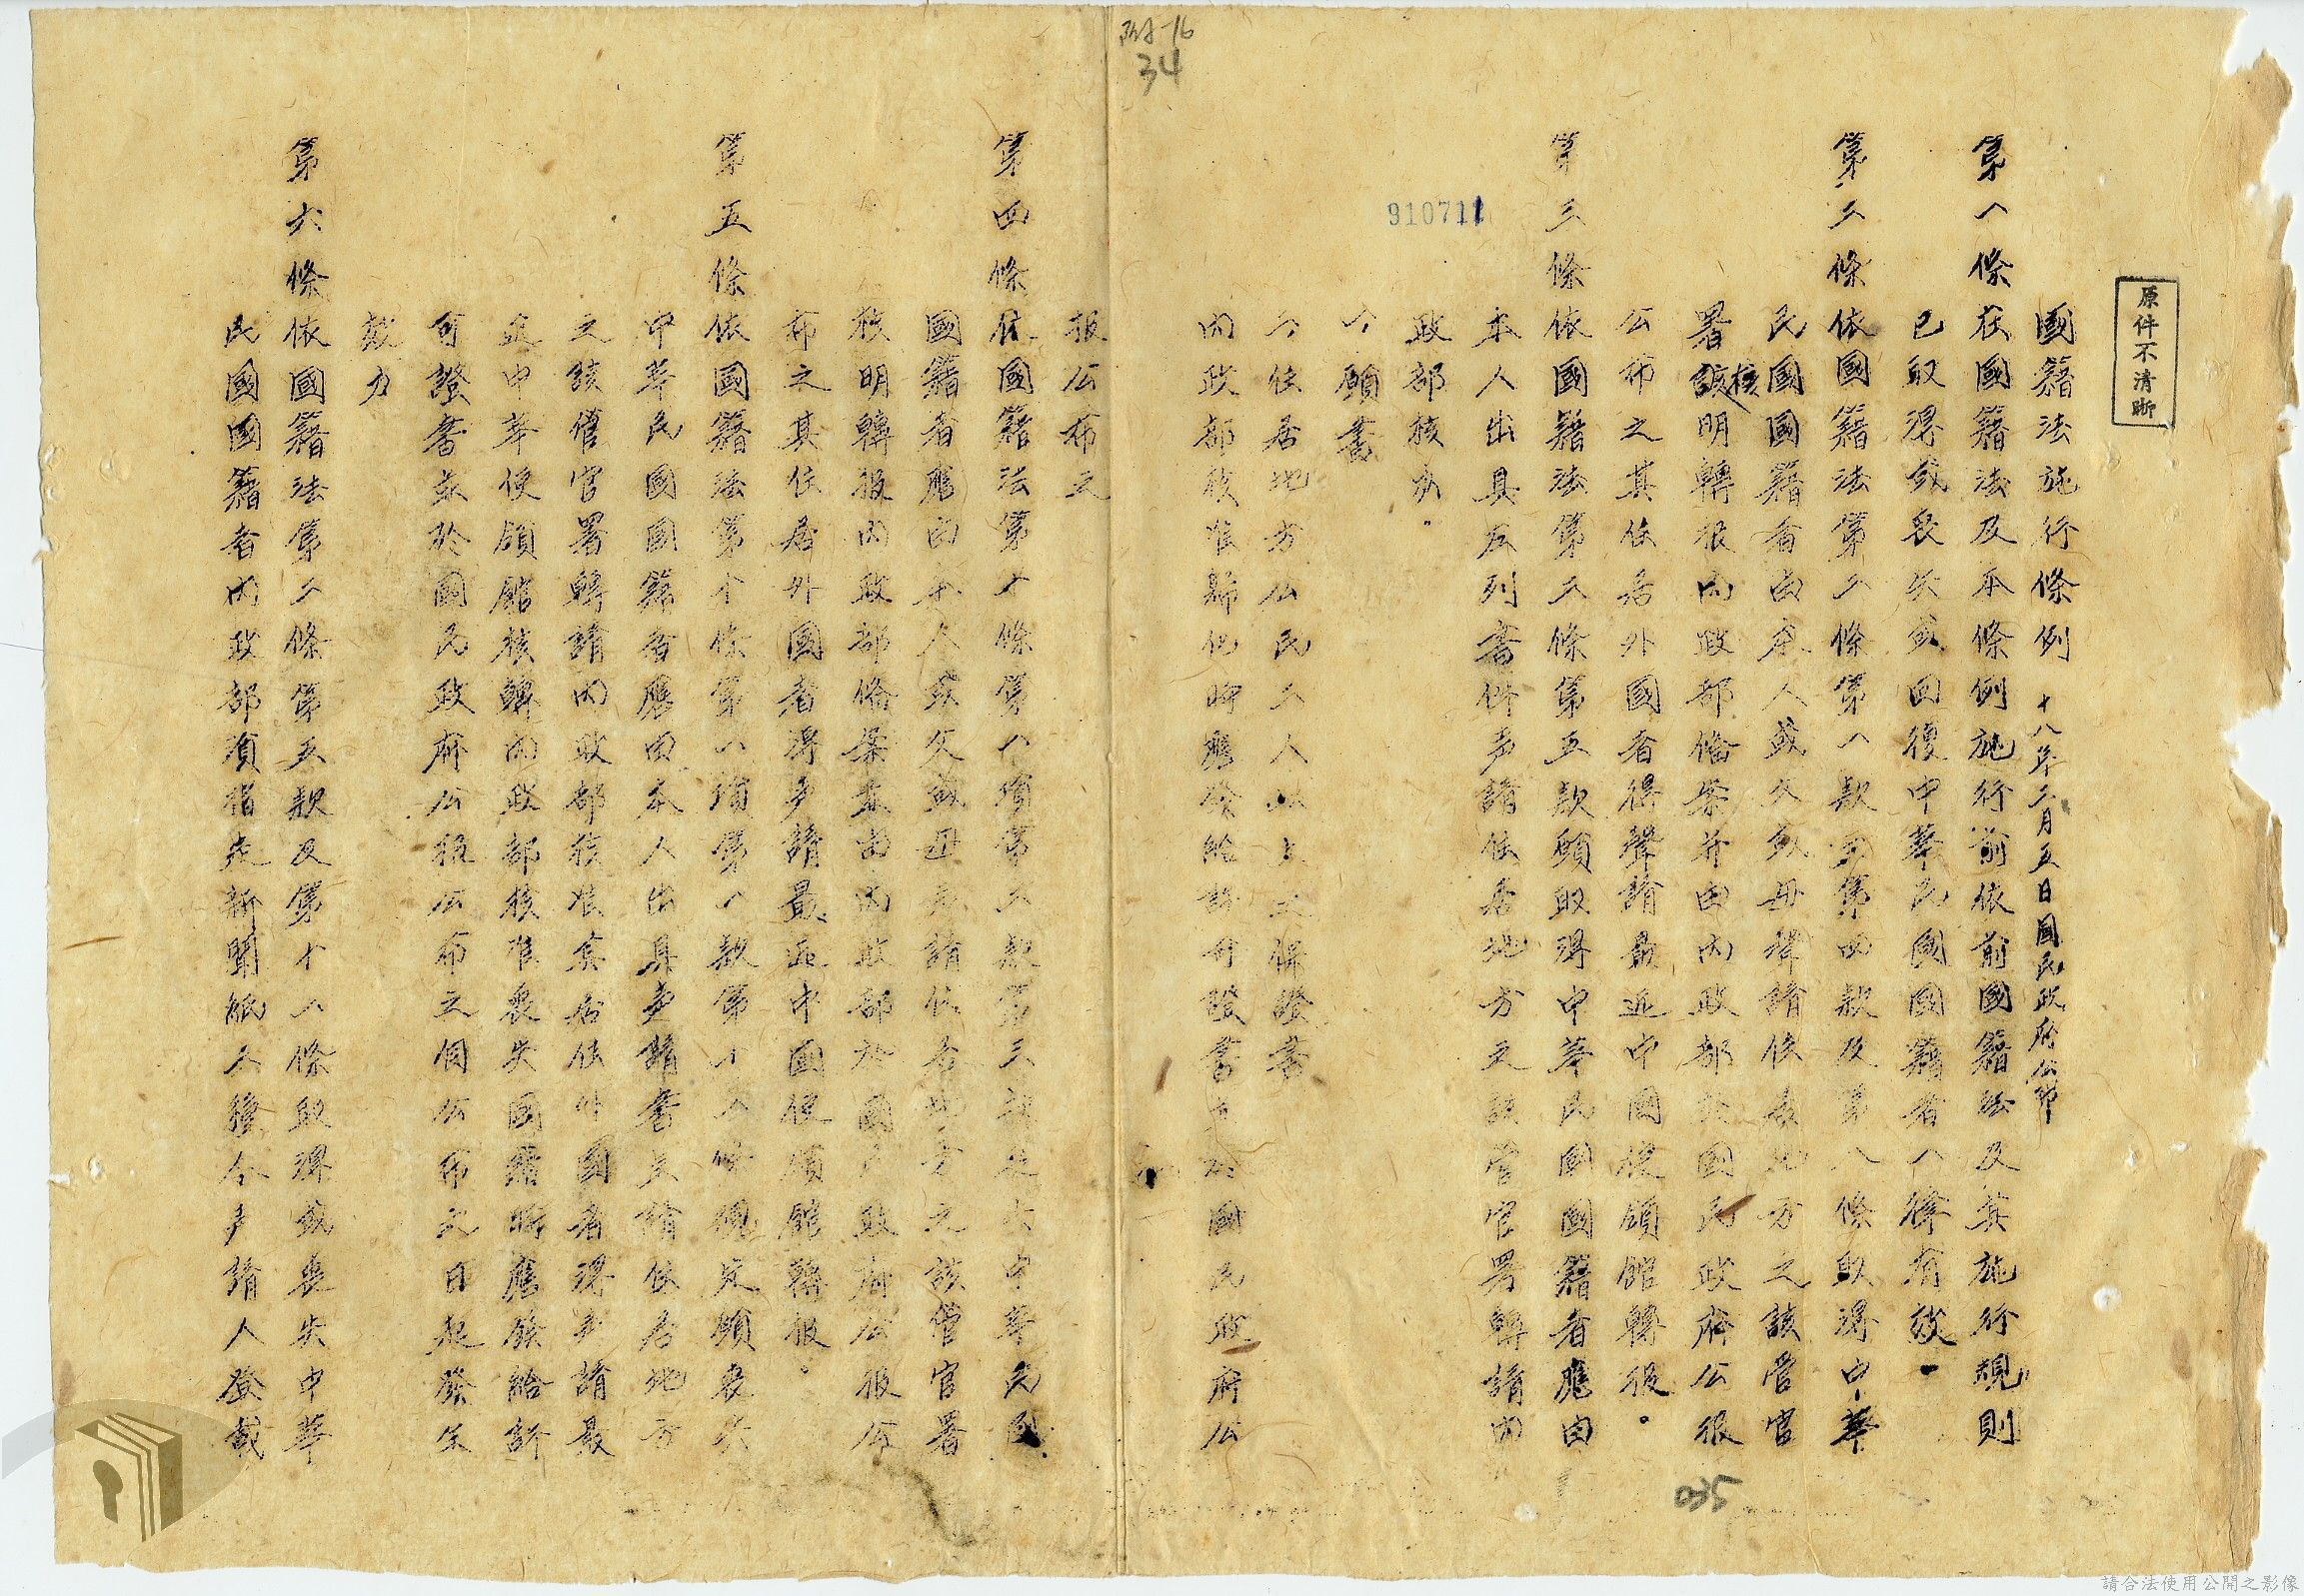 附-16
34
910711
原件不清晰
國籍法施行條例 十八年二月五日國民政府公布
第一條 在國籍法及本條例施行前依前國籍法及其施行規則
已取得或喪失或回復中華民國國籍者一律有效
第二條 依國籍法第二條第一款至第四款及第八條取得中華
民國國籍者由本人或父或母聲請住居地方之該管官
署核明轉報內政部備案并由內政部於國民政府公報
公布之其住居外國者得聲請最近中國使領館轉報。
第三條 依國籍法第二條第五款願取得中華民國國籍者應由
本人出具左列書件声請住居地方之該管官署轉請內
政部核办。
一、願書
二、住居地方公民二人以上之保證書
內政部核准歸化時應發給許可證書並於國民政府公
報公布之
第四條 依國籍法第十條第一項第二款第三款喪失中華民國
國籍者應由本人或父或母声請住居地方之該管官署
核明轉報內政部備案並由內政部於國民政府公報公
布之其住居外國者得声請最近中國使領館轉報。
第五條 依國籍法第十條第一項第一款第十一條規定願喪失
中華民國國籍者應由本人出具声請書声請住居地方
之該管官署轉請內政部核准其居住外國者得声請最
近中華使領館核轉內政部核准喪失國籍時應發給許
可證書並於國民政府公報公布之自公布之日起發生
效力
第六條 依國籍法第二條第五款及第十一條取得或喪失中華
民國國籍者內政部須指定新聞紙二種令声請人登載
035
請合法使用公開之影像